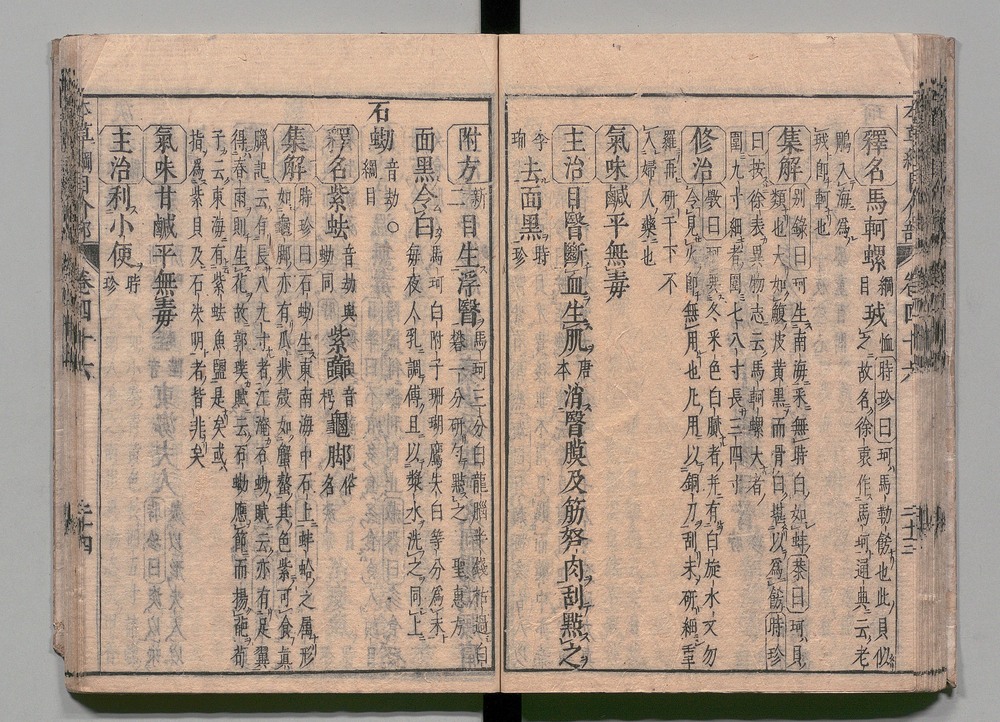 釋名馬軻螺綱目珬恤時珍曰珂馬勒飾也此貝似之故名徐表作馬軻通典云老
鵰入海爲珬即軻也
集解别錄曰珂生南海采無時白如蚌恭曰珂貝類也大如鰒皮黄黑而骨白堪以爲飾時珍曰按徐表異物志云馬軻螺大者圍九寸細者圍七八寸長三四寸
修治斅曰珂要冬采色白膩者并有白旋水文勿令見火即無用也凡用以銅刀刮末研細重羅再研千下不入婦人藥也
氣味鹹平無毒
主治目瞖斷血生肌唐本消瞖膜及筋弩肉刮點之李珣去面黑時珍
附方新二目生浮瞖馬珂三分白龍腦半錢枯過白礬一分研勻點之聖惠方
面黑令白馬珂白附子珊瑚鷹矢白等分爲末每夜人乳調傅旦以漿水洗之同上
石蜐音劫○綱目
釋名紫蛣音劫與蜐同紫𧉧音枵龜脚俗名
集解時珍曰石蜐生東南海中石上蚌蛤之屬形如龜脚亦有爪狀殼如蟹螯其色紫可食真臘記云有長八九寸者江淹石蜐賦云亦有足翼得春雨則生花故郭璞賦云石蜐應節而揚葩荀子云東海有紫蛣魚鹽是矣或指爲紫貝及石決明者皆非矣
氣味甘鹹平無毒
主治利小便時珍